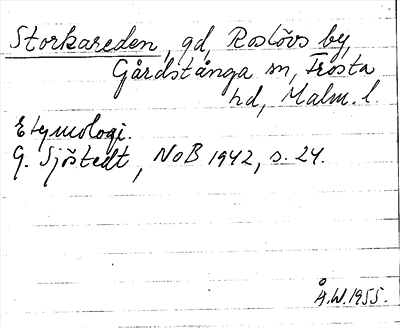 Storkareden, gd, Roslövs by,
Gårdstånga sn, Frosta
hd, Malm. l.
Etymologi.
G. Sjöstedt, NoB 1942, s. 24.
Å.W. 1955.